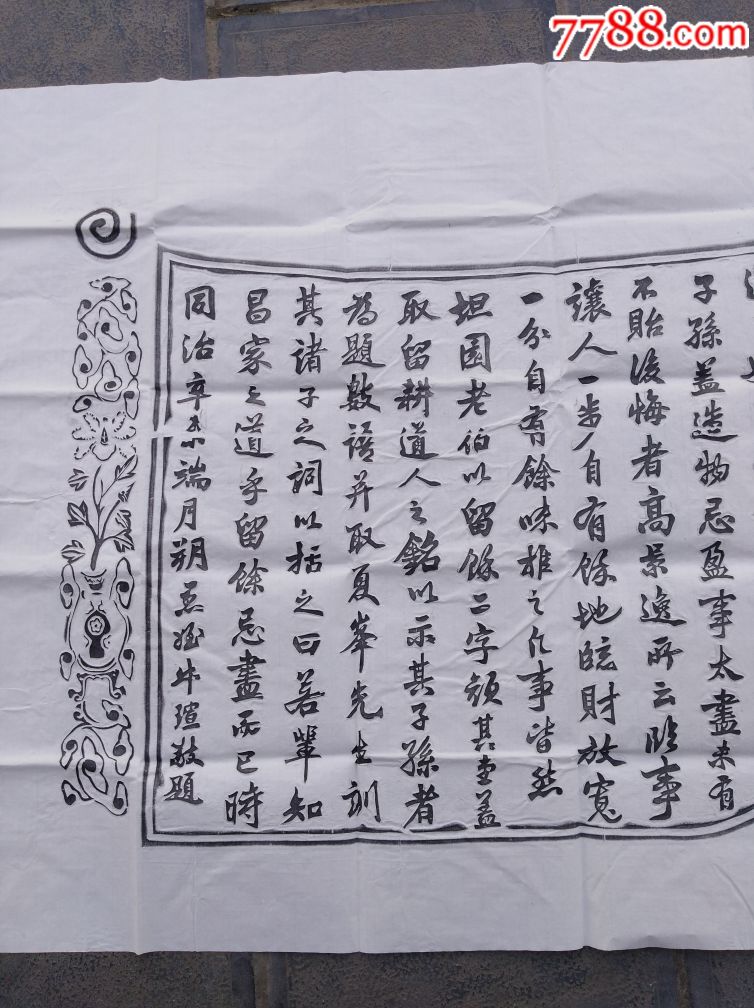 7788.com
子孫蓋造物忌盈事太盡未有
不貽後悔者高景逸所云臨事
讓人一步自有餘地臨財放寬
一分自有餘味推之凡事皆然
坦園老伯以留餘二字顏其堂蓋
取留耕道人之銘以示其子孫者
為題數語并取夏峯先生訓
其諸子之詞以括之曰若輩知
昌家之道乎留餘忌盡而已時
同治辛未端月朔愚姪牛瑄敬題